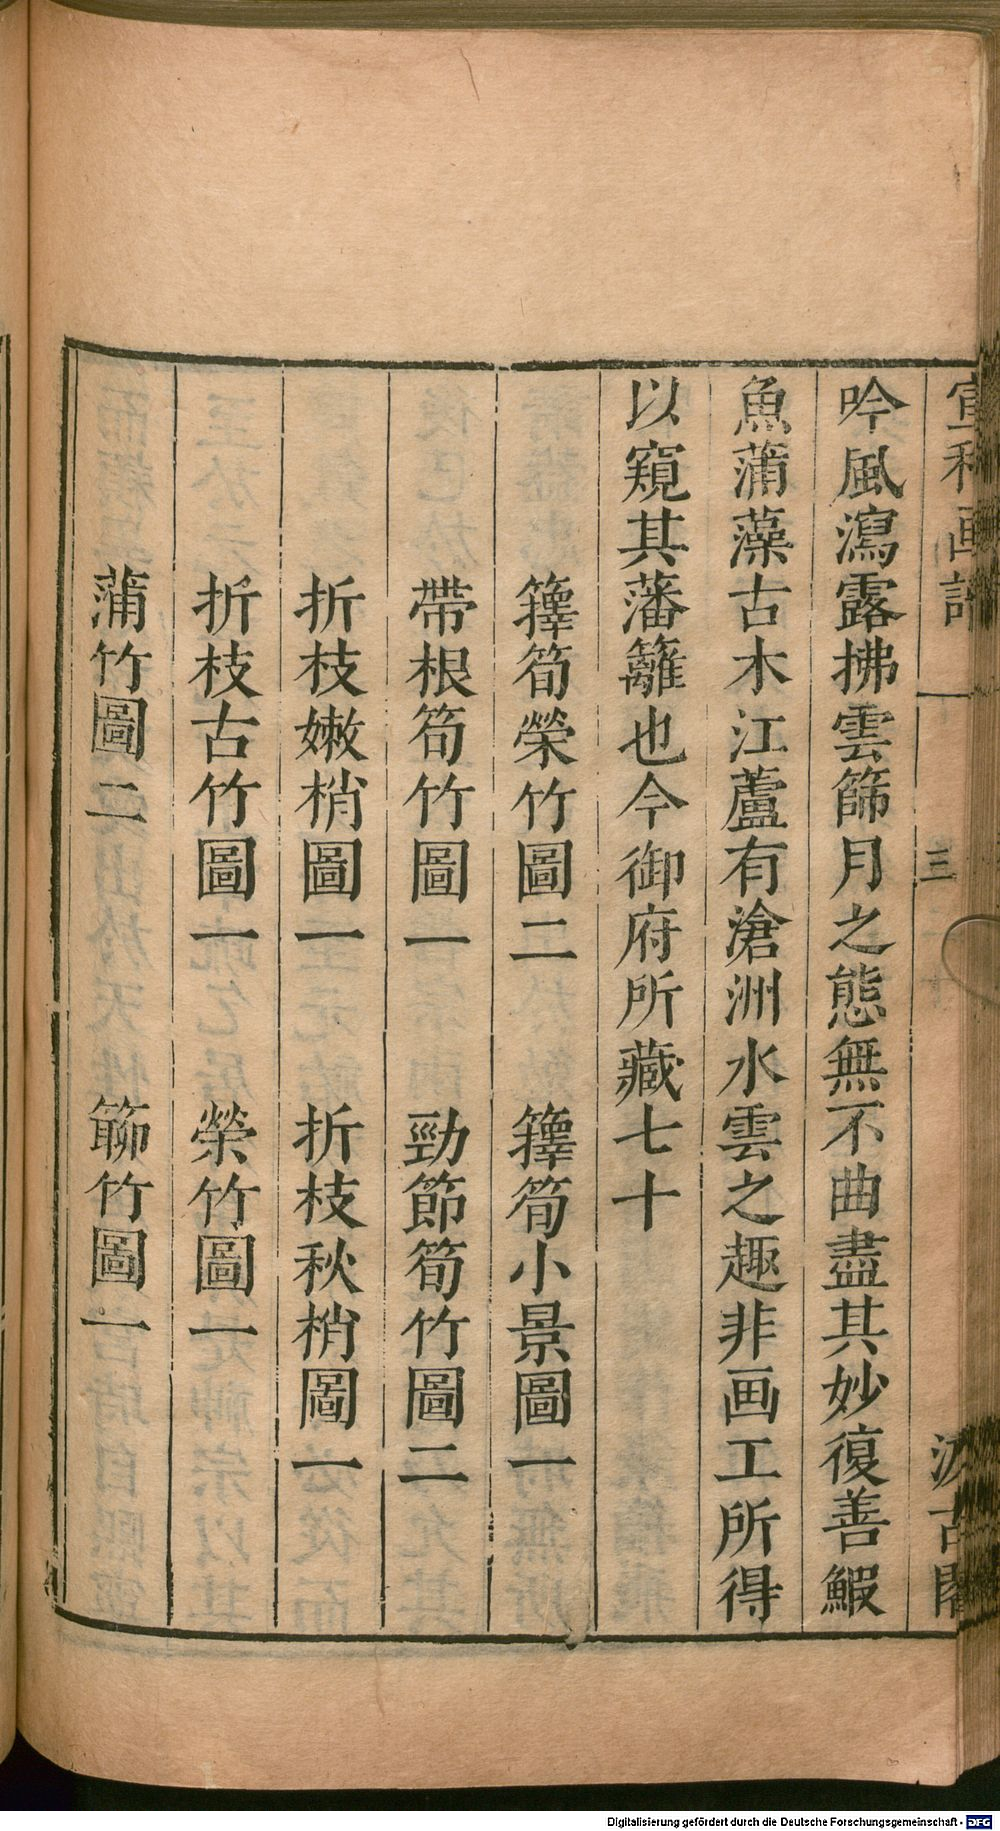 宣和画譜 三 汲古閣
吟風瀉露拂雲篩月之態無不曲盡其妙復善鰕
魚蒲藻古木江蘆有滄洲水雲之趣非画工所得
以窺其藩籬也今御府所藏七十
籜筍榮竹圖二 籜筍小景圖一
帶根筍竹圖一 勁節筍竹圖二
折枝嫩梢圖一 折枝秋梢圖一
折枝古竹圖一 榮竹圖一
蒲竹圖二 䈁竹圖一
Digitalisierung gefördert durch die Deutsche Forschungsgemeinschaft - DFG